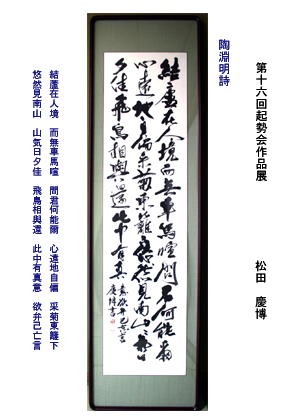 第十六回起勢会作品展 松田 慶博
陶淵明詩
結蘆在人境而無車馬喧問君何能爾
心遠地自偏采菊東籬下悠然見南山山気日
夕佳飛鳥相與還此中有真意欲弁己亡言
慶博書
結蘆在人境 而無車馬喧 問君何能爾 心遠地自偏 采菊東籬下
悠然見南山 山気日夕佳 飛鳥相與還 此中有真意 欲弁己亡言